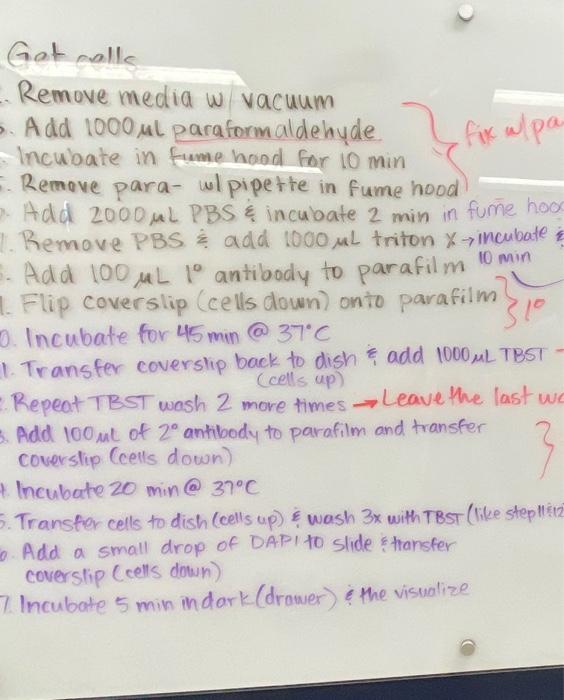 Get cells
. Remove media w/ vacuum
. Add 1000 µL paraformaldehyde
Incubate in fume hood for 10 min
fix w/pa
. Remove para- w/ pipette in fume hood
. Add 2000 µL PBS & incubate 2 min in fume hoo
. Remove PBS & add 1000 µL triton X → incubate
10 min
. Add 100 µL 1° antibody to parafilm
. Flip coverslip (cells down) onto parafilm } 1°
0. Incubate for 45 min @ 37°C
1. Transfer coverslip back to dish & add 1000 µL TBST -
(cells up)
. Repeat TBST wash 2 more times → Leave the last wa
3. Add 100 µL of 2° antibody to parafilm and transfer
coverslip (cells down)
. Incubate 20 min @ 37°C
5. Transfer cells to dish (cells up) & wash 3x with TBST (like step 11 & 12
6. Add a small drop of DAPI to slide & transfer
coverslip (cells down)
7. Incubate 5 min in dark (drawer) & the visualize